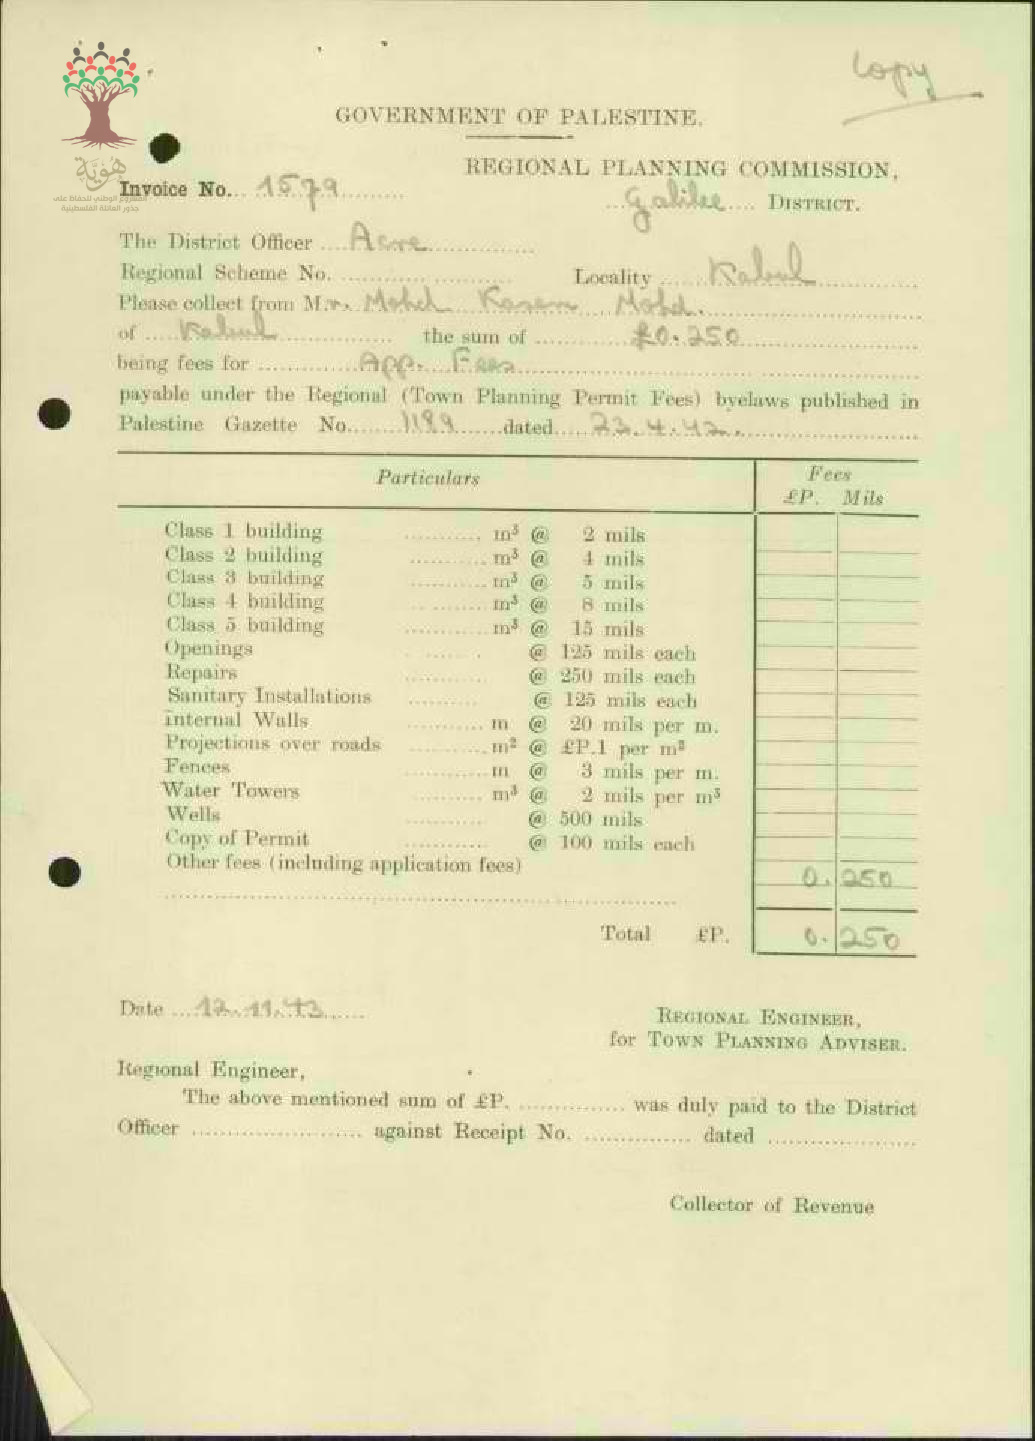 Copy
GOVERNMENT OF PALESTINE.
هُوِيَّة
المشروع الوطني للحفاظ على
جذور العائلة الفلسطينية
REGIONAL PLANNING COMMISSION,
Invoice No. 1579
Galilee DISTRICT.
The District Officer Acre
Regional Scheme No. Locality Kabul
Please collect from Mr. Mohd Kasem Mohd.
of Kabul the sum of £0.250
being fees for App. Fees
payable under the Regional (Town Planning Permit Fees) byelaws published in
Palestine Gazette No. 1189 dated 23.4.42.
Particulars Fees
£P. Mils
Class 1 building m³ @ 2 mils
Class 2 building m³ @ 4 mils
Class 3 building m³ @ 5 mils
Class 4 building m³ @ 8 mils
Class 5 building m³ @ 15 mils
Openings @ 125 mils each
Repairs @ 250 mils each
Sanitary Installations @ 125 mils each
Internal Walls m @ 20 mils per m.
Projections over roads m² @ £P.1 per m²
Fences m @ 3 mils per m.
Water Towers m³ @ 2 mils per m³
Wells @ 500 mils
Copy of Permit @ 100 mils each
Other fees (including application fees) 0. 250
Total £P. 0. 250
Date 12.11.43
REGIONAL ENGINEER,
for TOWN PLANNING ADVISER.
Regional Engineer,
The above mentioned sum of £P. was duly paid to the District
Officer against Receipt No. dated
Collector of Revenue